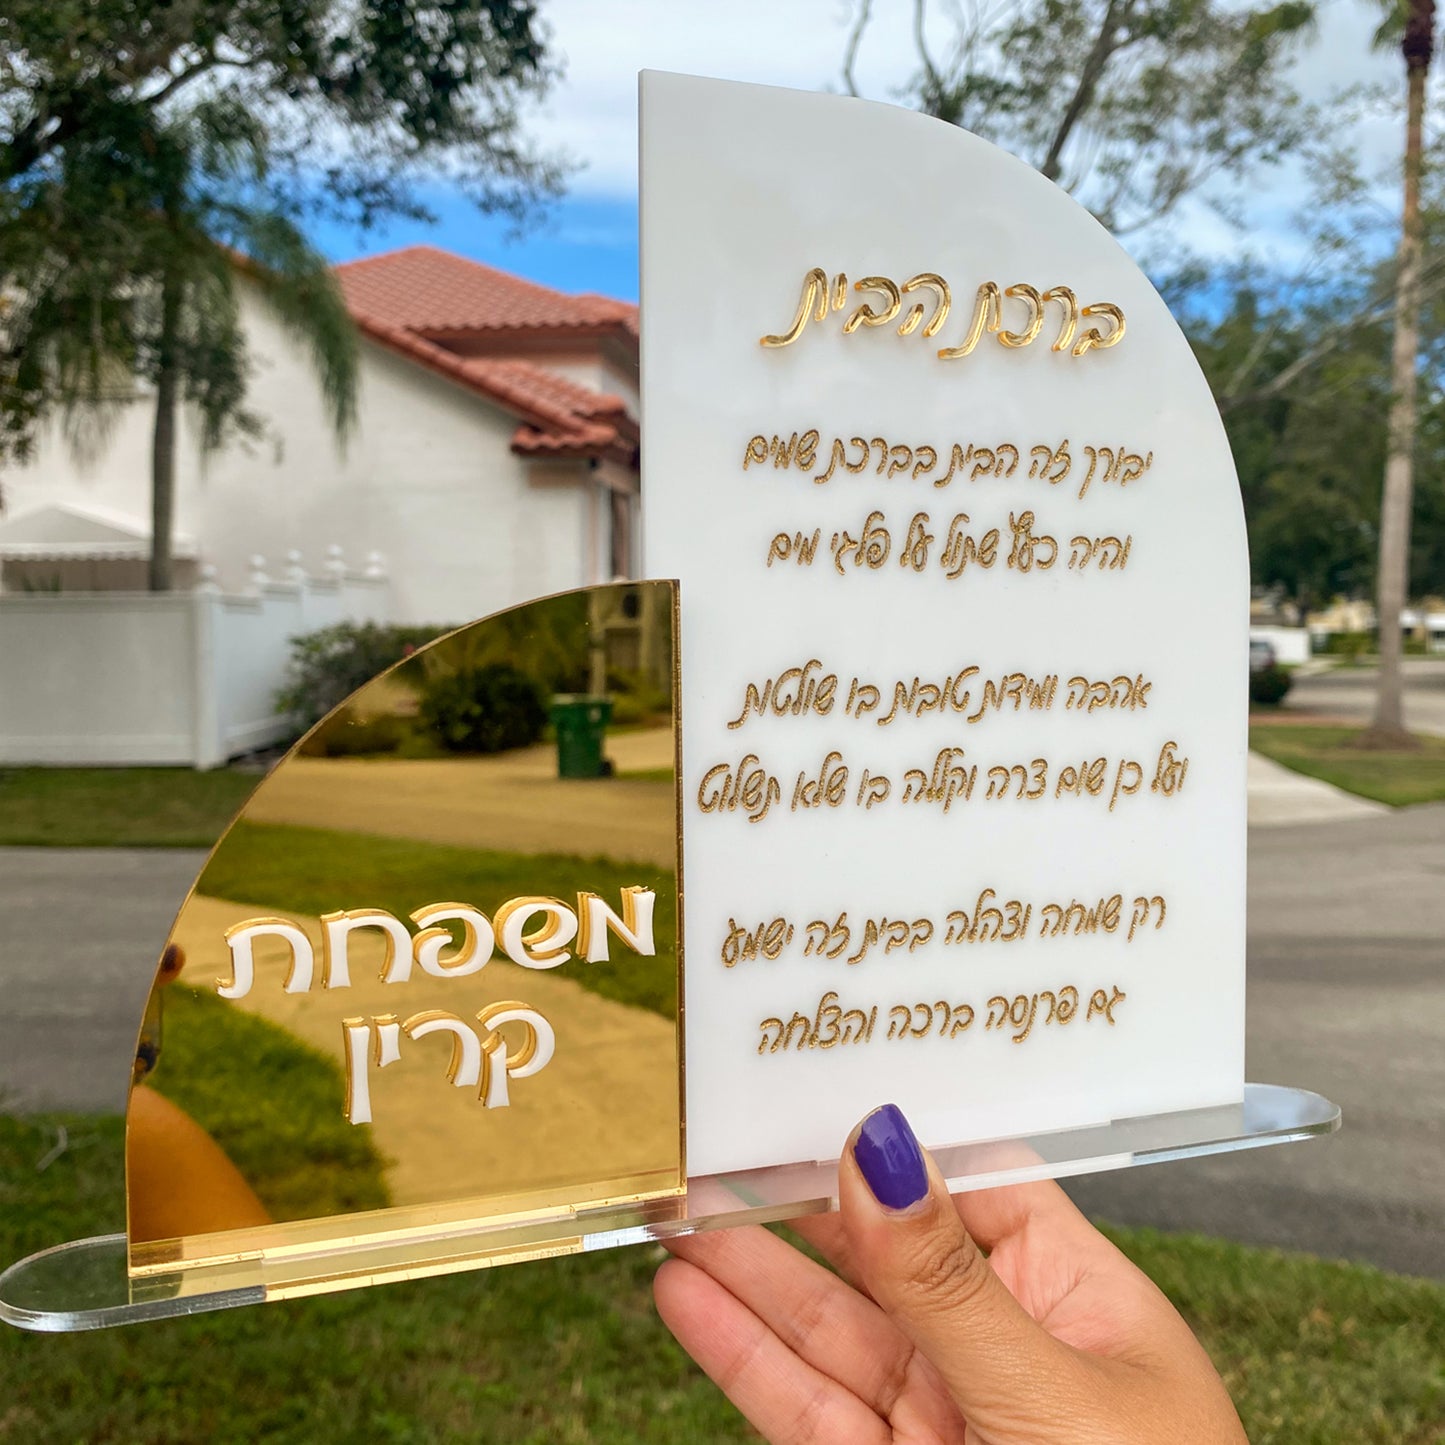 ברכת הבית
יבורך זה הבית בברכת שמים
והיה כעץ שתול על פלגי מים
אהבה ומידות טובות בו שולטות
ועל כן שום צרה וקללה בו שלא תשלוט
רק שמחה וצהלה בבית זה ישמע
גם פרנסה ברכה והצלחה
משפחת
קרין